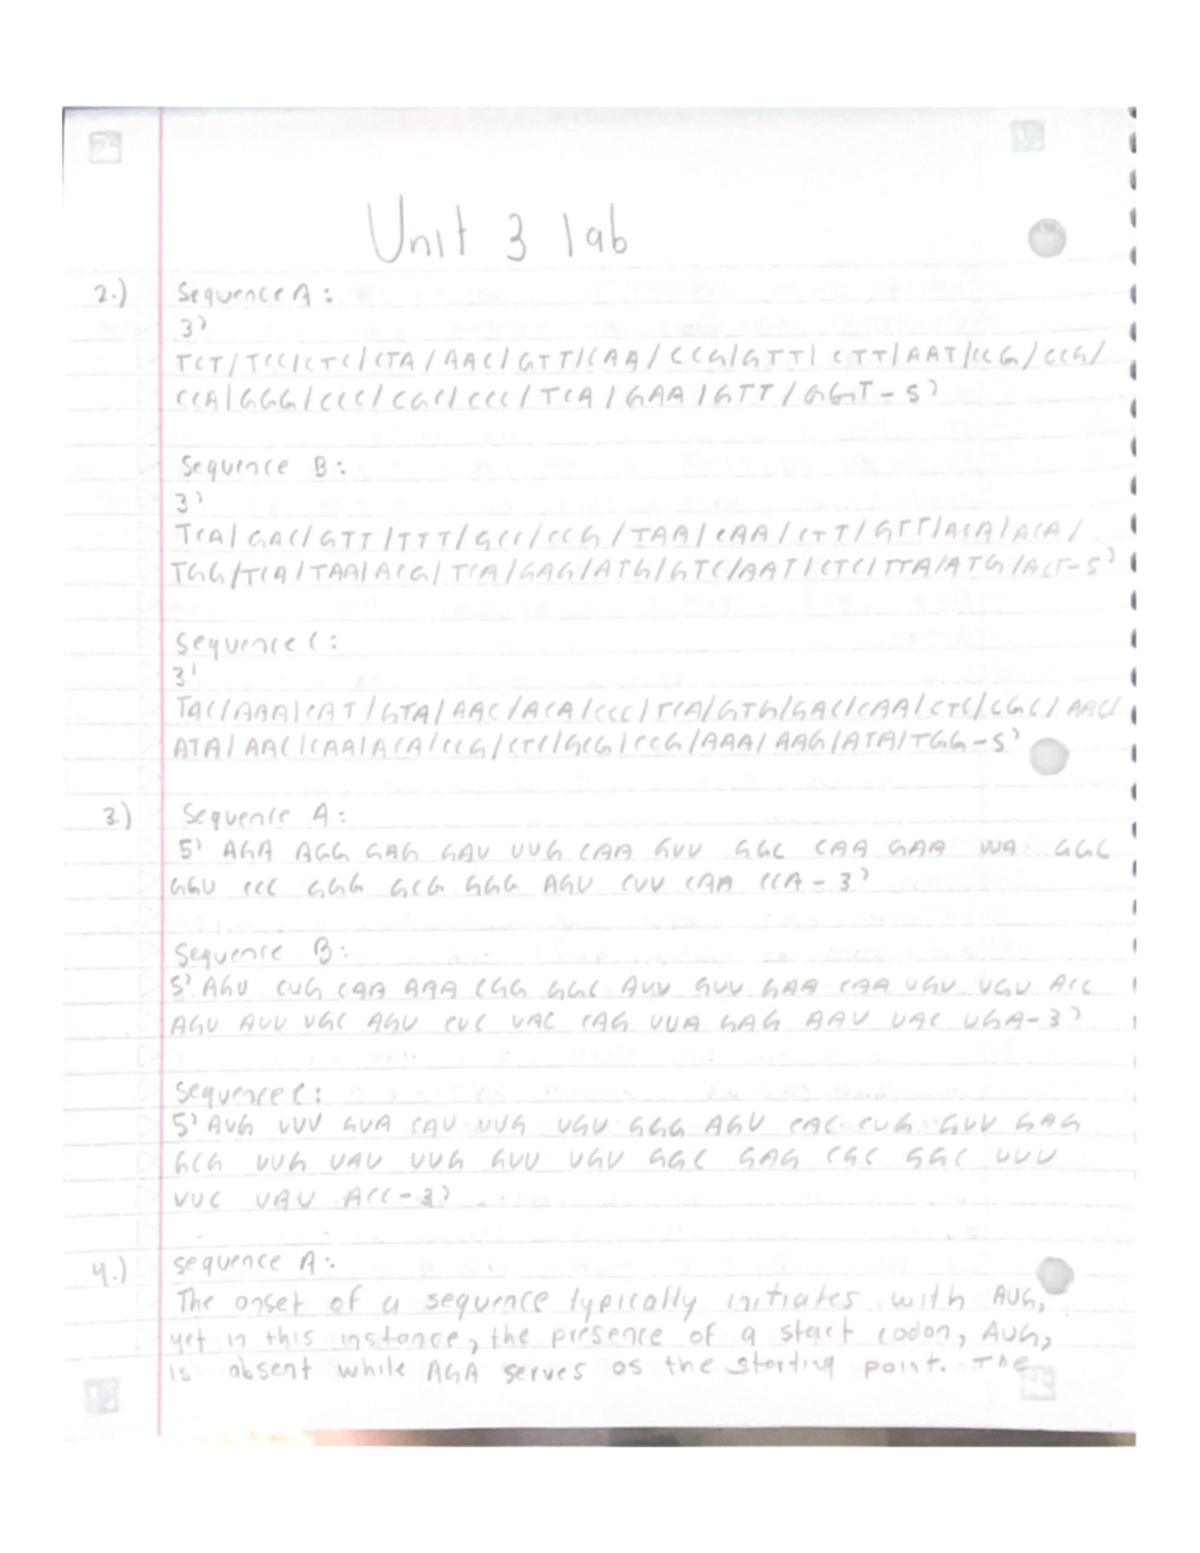 Unit 3 lab
2.) Sequence A:
3'
TCT/TCC/CTC/CTA/AAC/GTT/CAA/CCG/GTT/CTT/AAT/CCG/CCG/
CCA/GGG/CCC/CGC/CCC/TCA/GAA/GTT/GGT-5'
Sequence B:
3'
TCA/GAC/GTT/TTT/GCC/CCG/TAA/CAA/CTT/GTT/ACA/ACA/
TGG/TCA/TAA/ACG/TCA/GAG/ATG/GTC/AAT/CTC/TTA/ATG/ACT-5'
Sequence C:
3'
TAC/AAA/CAT/GTA/AAC/ACA/CCC/TCA/GTG/GAC/CAA/CTC/CGC/AAC/
ATA/AAC/CAA/ACA/CCG/CTC/GCG/CCG/AAA/AAG/ATA/TGG-5'
3.) Sequence A:
5' AGA AGG GAG GAU UUG CAA GUU GGC CAA GAA UUA GGC
GGU CCC GGG GCG GGG AGU CUU CAA CCA-3'
Sequence B:
5' AGU CUG CAA AAA CGG GGC AUU GUU GAA CAA UGU UGU ACC
AGU AUU UGC AGU CUC UAC CAG UUA GAG AAU UAC UGA-3'
Sequence C:
5' AUG UUU GUA CAU UUG UGU GGG AGU CAC CUG GUU GAG
GCG UUG UAU UUG GUU UGU GGC GAG CGC GGC UUU
UUC UAU ACC-3'
4.) sequence A:
The onset of a sequence typically initiates with AUG,
yet in this instance, the presence of a start codon, AUG,
is absent while AGA serves os the starting point. The